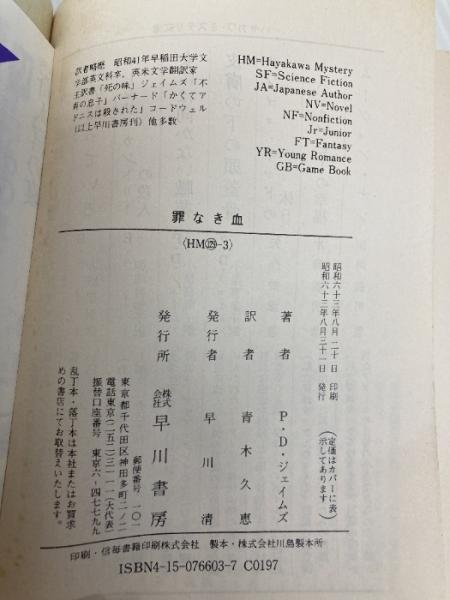 訳者略歴 昭和41年早稲田大学文
学部英文科卒，英米文学翻訳家
主訳書「死の味」ジェイムズ「不
和の息子」バーナード「かくてア
ドニスは殺された」コードウェル
（以上早川書房刊）他多数
HM=Hayakawa Mystery
SF=Science Fiction
JA=Japanese Author
NV=Novel
NF=Nonfiction
Jr=Junior
FT=Fantasy
YR=Young Romance
GB=Game Book
罪なき血
〈HM129-3〉
昭和六十三年八月二十日 印刷
昭和六十三年八月三十一日 発行
（定価はカバーに表
示してあります）
著者 P・D・ジェイムズ
訳者 青木久恵
発行者 早川清
発行所 株式会社 早川書房
郵便番号 一〇一
東京都千代田区神田多町二ノ二
電話東京（二五二）三一一一（大代表）
振替口座番号 東京六－四七七九九
乱丁本・落丁本は本社またはお買求
めの書店にてお取替えいたします。
印刷・信毎書籍印刷株式会社 製本・株式会社川島製本所
ISBN4-15-076603-7 C0197